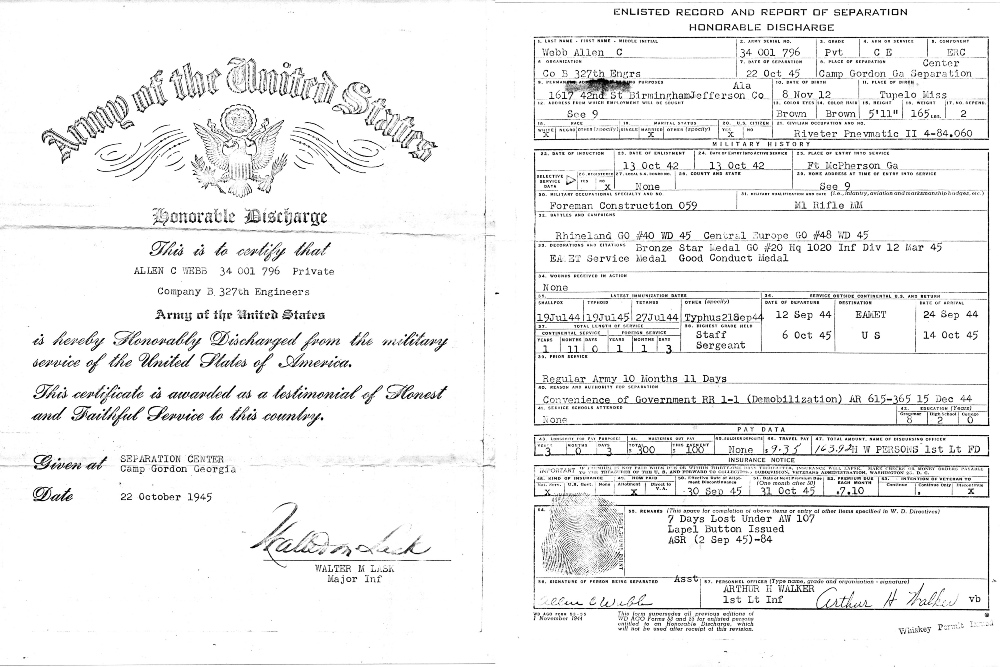 Army of the United States
Honorable Discharge
This is to certify that
ALLEN C WEBB 34 001 796 Private
Company B 327th Engineers
Army of the United States
is hereby Honorably Discharged from the military
service of the United States of America.
This certificate is awarded as a testimonial of Honest
and Faithful Service to this country.
Given at SEPARATION CENTER
Camp Gordon Georgia
Date 22 October 1945
WALTER M LASK
Major Inf
ENLISTED RECORD AND REPORT OF SEPARATION
HONORABLE DISCHARGE
1. LAST NAME - FIRST NAME - MIDDLE INITIAL 2. ARMY SERIAL NO. 3. GRADE 4. ARM OR SERVICE 5. COMPONENT
Webb Allen C 34 001 796 Pvt C E ERC
6. ORGANIZATION 7. DATE OF SEPARATION 8. PLACE OF SEPARATION Center
Co B 327th Engrs 22 Oct 45 Camp Gordon Ga Separation
9. PERMANENT PURPOSES Ala 10. DATE OF BIRTH 11. PLACE OF BIRTH
1617 42nd St Birmingham Jefferson Co 8 Nov 12 Tupelo Miss
12. ADDRESS FROM WHICH EMPLOYMENT WILL BE SOUGHT 13. COLOR EYES 14. COLOR HAIR 15. HEIGHT 16. WEIGHT 17. NO. DEPEND.
See 9 Brown Brown 5'11" 165 LBS. 2
18. RACE 19. MARITAL STATUS 20. U.S. CITIZEN 21. CIVILIAN OCCUPATION AND NO.
WHITE NEGRO OTHER (specify) SINGLE MARRIED OTHER (specify) YES NO
X X X Riveter Pnevmatic II 4-84.060
MILITARY HISTORY
22. DATE OF INDUCTION 23. DATE OF ENLISTMENT 24. DATE OF ENTRY INTO ACTIVE SERVICE 25. PLACE OF ENTRY INTO SERVICE
13 Oct 42 13 Oct 42 Ft McPherson Ga
SELECTIVE SERVICE DATA 26. REGISTERED YES NO 27. LOCAL S.S. BOARD NO. 28. COUNTY AND STATE 29. HOME ADDRESS AT TIME OF ENTRY INTO SERVICE
X None See 9
30. MILITARY OCCUPATIONAL SPECIALTY AND NO. 31. MILITARY QUALIFICATION AND DATE (i.e., infantry, aviation and marksmanship badges, etc.)
Foreman Construction 059 M1 Rifle MM
32. BATTLES AND CAMPAIGNS
Rhineland GO #40 WD 45 Central Europe GO #48 WD 45
33. DECORATIONS AND CITATIONS Bronze Star Medal GO #20 Hq 1020 Inf Div 12 Mar 45
EAMET Service Medal Good Conduct Medal
34. WOUNDS RECEIVED IN ACTION
None
35. LATEST IMMUNIZATION DATES 36. SERVICE OUTSIDE CONTINENTAL U.S. AND RETURN
SMALLPOX TYPHOID TETANUS OTHER (specify) DATE OF DEPARTURE DESTINATION DATE OF ARRIVAL
19Jul44 19Jul45 27Jul44 Typhus 21Sep44 12 Sep 44 EAMET 24 Sep 44
37. TOTAL LENGTH OF SERVICE 38. HIGHEST GRADE HELD
CONTINENTAL SERVICE FOREIGN SERVICE Staff 6 Oct 45 U S 14 Oct 45
YEARS MONTHS DAYS YEARS MONTHS DAYS Sergeant
1 11 0 1 1 3
39. PRIOR SERVICE
Regular Army 10 Months 11 Days
40. REASON AND AUTHORITY FOR SEPARATION
Convenience of Government RR 1-1 (Demobilization) AR 615-365 15 Dec 44
41. SERVICE SCHOOLS ATTENDED 42. EDUCATION (Years)
Grammar High School College
None 8 2 0
PAY DATA
43. LONGEVITY FOR PAY PURPOSES 44. MUSTERING OUT PAY 45. SOLDIER DEPOSITS 46. TRAVEL PAY 47. TOTAL AMOUNT, NAME OF DISBURSING OFFICER
YEARS MONTHS DAYS TOTAL THIS PAYMENT
3 0 3 $ 300 $ 100 None $ 9.35 H W PERSONS 1st Lt FD
INSURANCE NOTICE
48. KIND OF INSURANCE 49. HOW PAID 50. Effective Date of Allotment Discontinuance 51. Date of Next Premium Due (One month after 50) 52. PREMIUM DUE EACH MONTH 53. INTENTION OF VETERAN TO
Nat. Serv. U.S. Govt. None Allotment Direct to V.A. Continue Continue Only Discontinue
X X 30 Sep 45 31 Oct 45 $ 7.10 X
54. 55. REMARKS (This space for completion of above items or entry of other items specified in W. D. Directives)
7 Days Lost Under AW 107
Lapel Button Issued
ASR (2 Sep 45)-84
56. SIGNATURE OF PERSON BEING SEPARATED Asst 57. PERSONNEL OFFICER (Type name, grade and organization - signature)
Allen C Webb ARTHUR H WALKER
1st Lt Inf Arthur H Walker vb
WD AGO FORM 53-55
1 November 1944
This form supersedes all previous editions of
WD AGO Forms 53 and 55 for enlisted persons
entitled to an Honorable Discharge, which
will not be used after receipt of this revision.
Whiskey Permit Issued